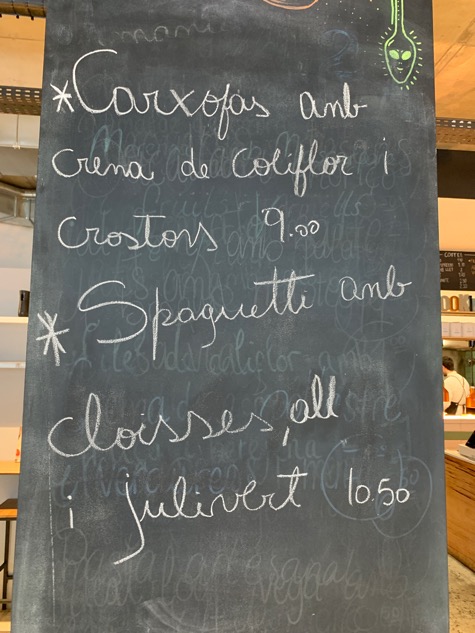 *Carxofas amb
crema de coliflor i
crostons 9.00
* Spaguetti amb
cloisses, all
i julivert 10.50
COFFEE